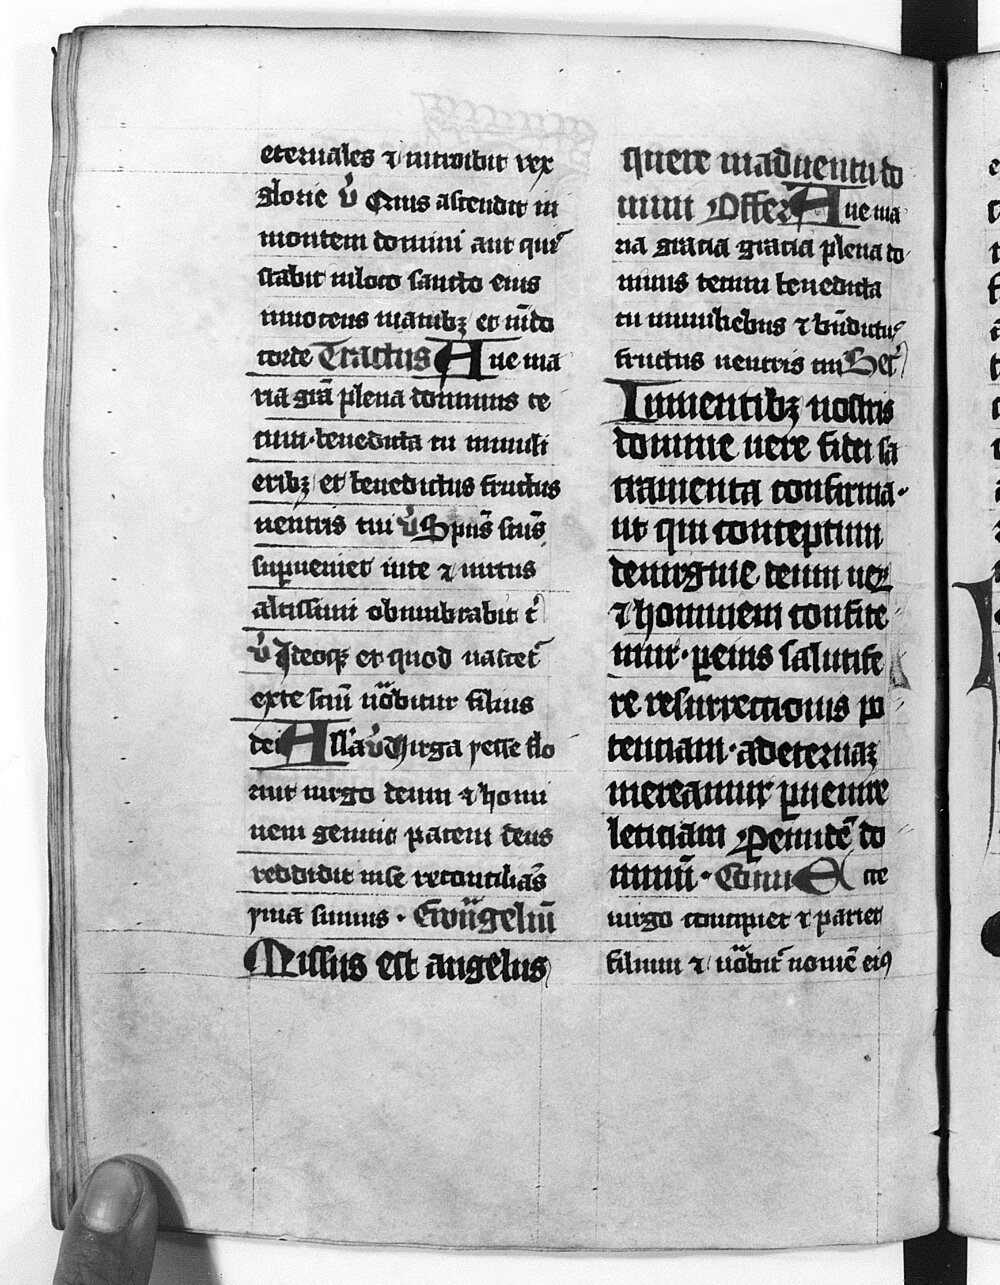 eternales ⁊ introibit rex
glorie v̉ Quis ascendit in
montem domini aut quis
stabit inloco sancto eius
innocens manibꝫ et mūdo
corde Tractus Aue ma
ria gr̄a plena dominus te
cum·benedicta tu in muli
eribꝫ et benedictus fructus
uentris tui v̉ Sp̄us sc̄us
suꝑueniet inte ⁊ uirtus
altissimi obumbrabit t̉
v̉ Ideoqꝫ et quod nascet᷑
exte sc̄m uo̎bitur filius
dei All'a v̉ Uirga yesse flo
ruit uirgo deum ⁊ homi
nem genuit pacem deus
reddidit inse reconcilians
yma summis · Ewā̎gelīu
Missus est angelus
quere inaduentu do
mini Offer̉ Aue ma
ria gracia gracia plena do
minus tecum benedicta
tu inmulieribus ⁊ bn̄dictus
fructus uentris tui Secr̉
Inmentibꝫ nostris
domine uere fidei sa
cramenta confirma·
ut qui conceptum
deuirgine deum uerum
⁊ hominem confite
mur·ꝑeius salutife
re resurrectionis po
tenciam·adeternam
mereamur ꝑuenire
leticiam Per eundē do
minū· Com̄u Ecce
uirgo concipiet ⁊ pariet
filium ⁊ uo̎bit᷑ nomē eiꝰ